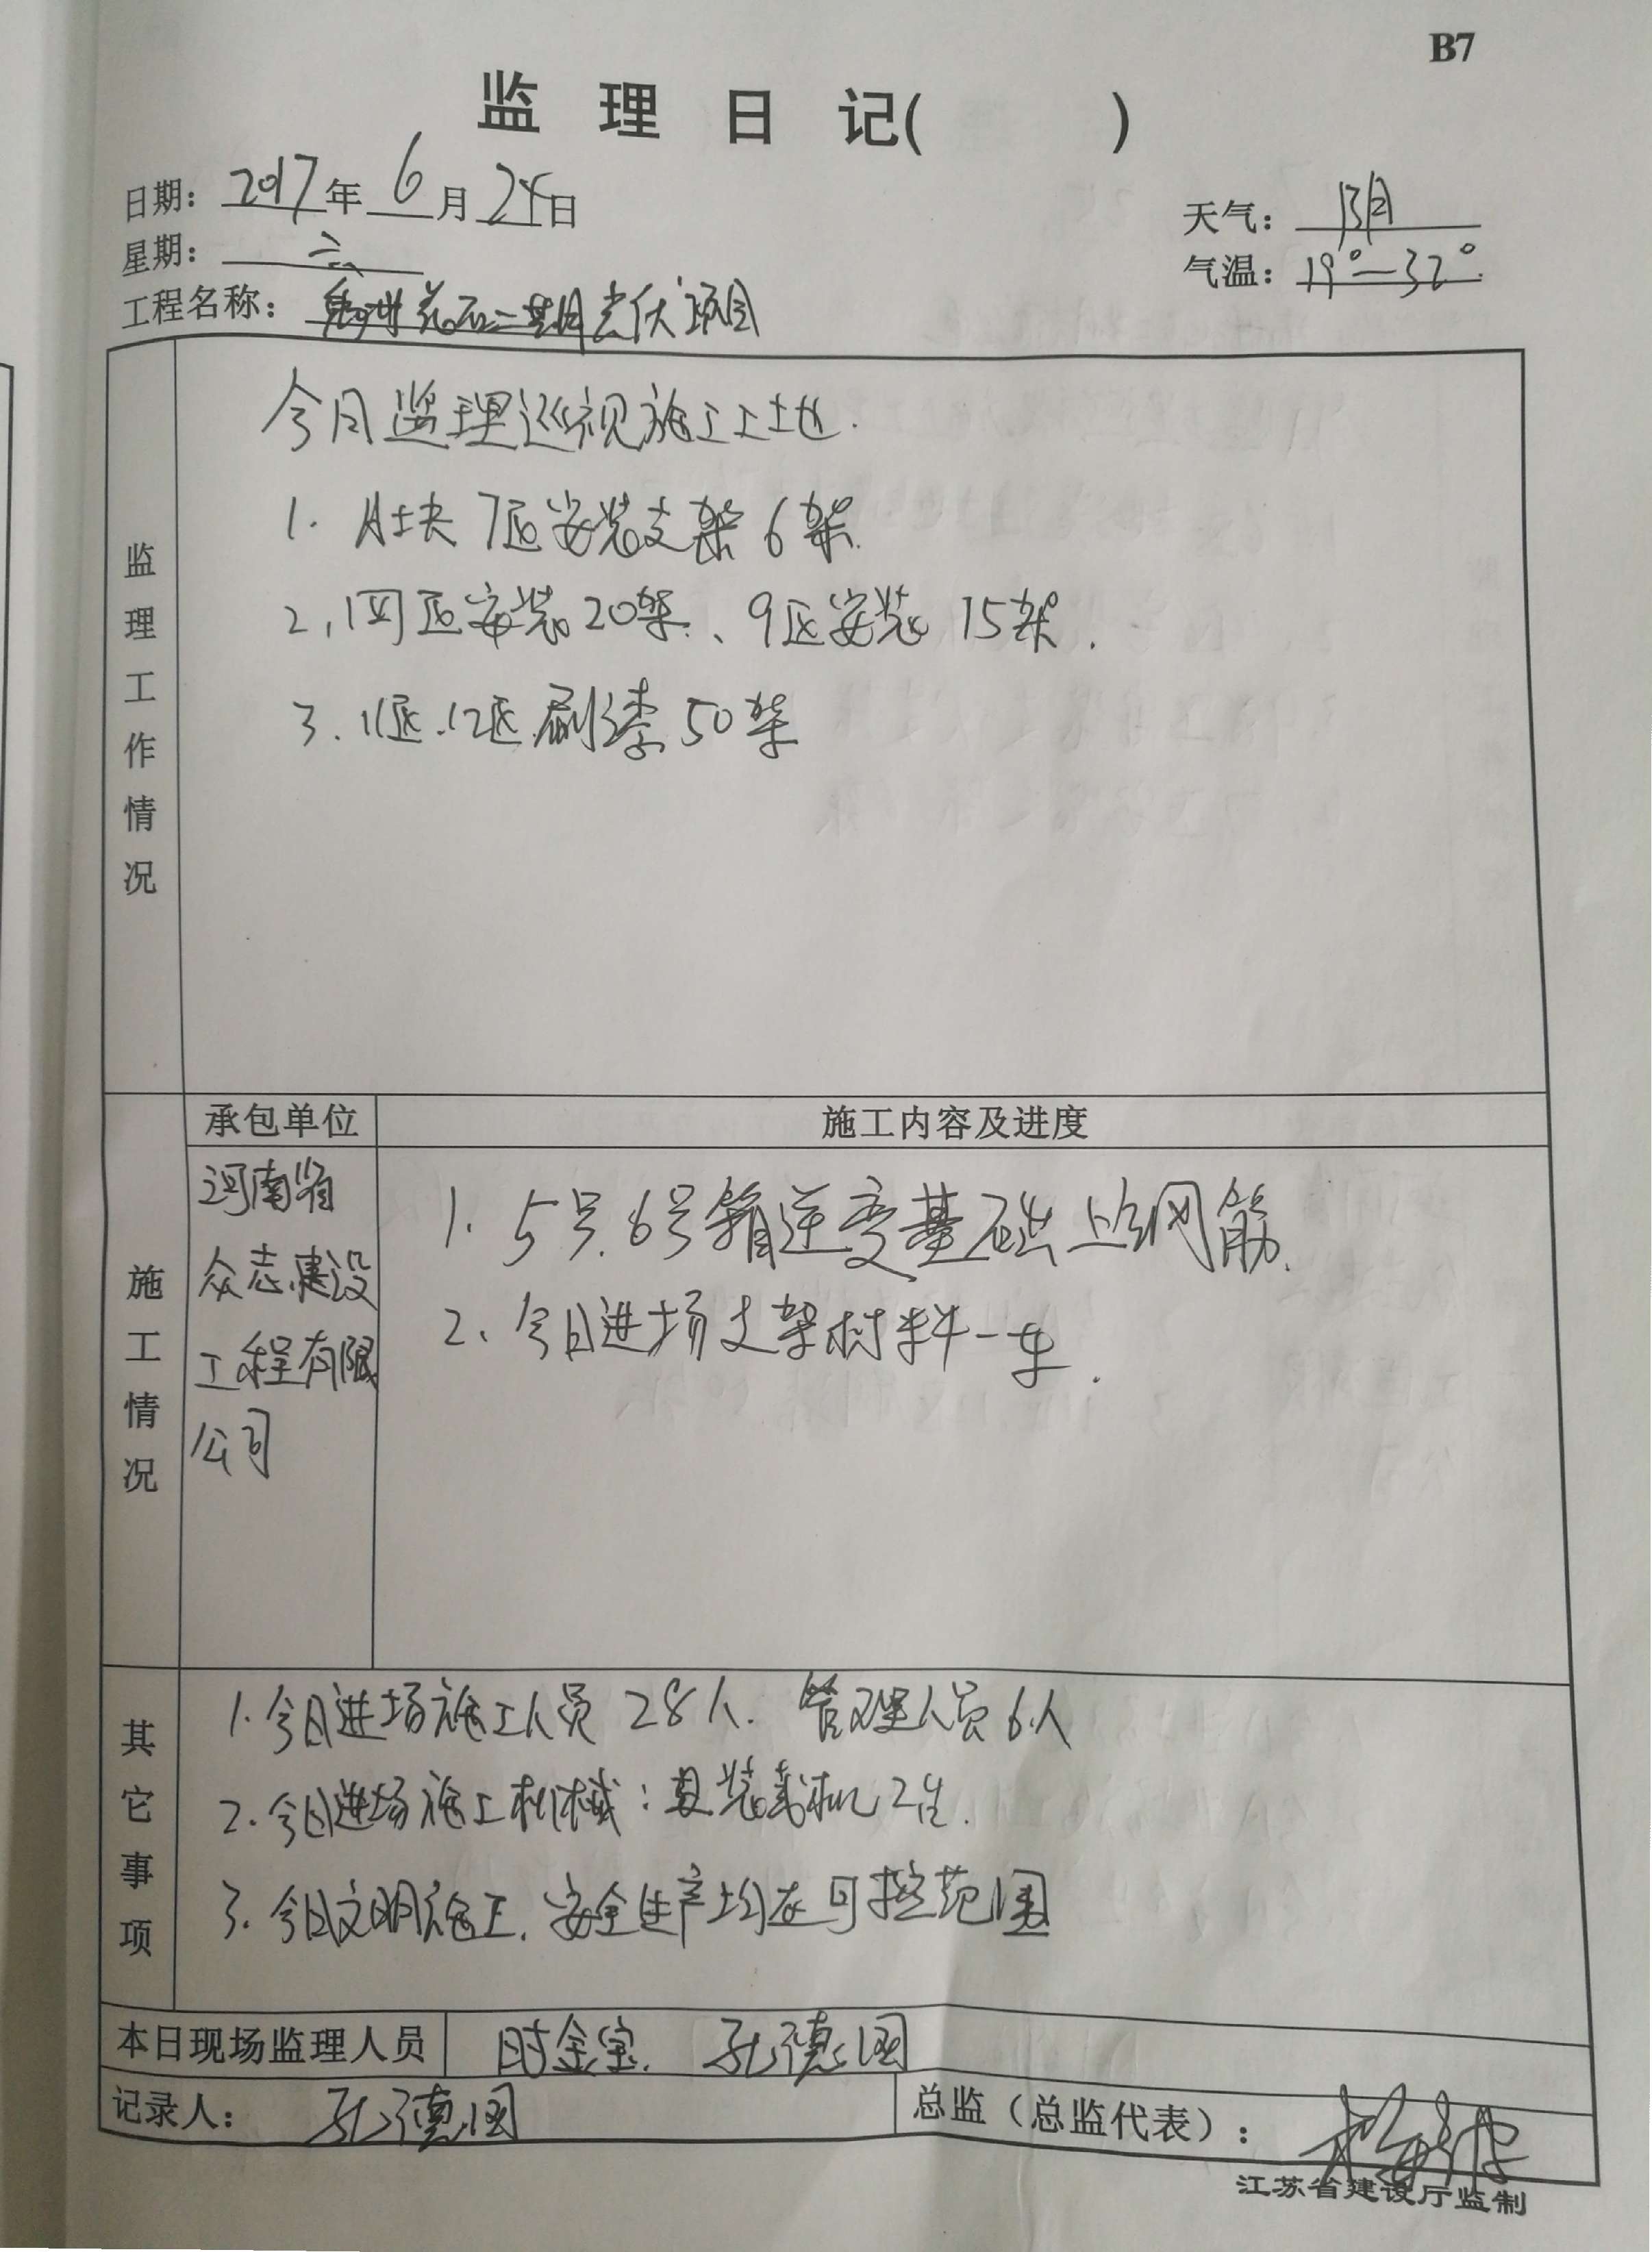 B7
监 理 日 记( )
日期: 2017 年 6 月 24 日
天气: 阴
星期: 六
气温: 19°—32°
工程名称: 禹州花石二期光伏项目
监理工作情况
今日监理巡视施工工地.
1. A块7区安装支架6架.
2, 区安装20架、9区安装15架.
3. 11区.12区.刷漆50架
施工情况
承包单位
施工内容及进度
河南省
众志建设
工程有限
公司
1. 5号.6号箱逆变基础上钢筋.
2、今日进场支架材料一车.
其它事项
1.今日进场施工人员28人. 管理人员6人
2.今日进场施工机械: 装载机2台.
3.今日文明施工.安全生产均在可控范围
本日现场监理人员 时金宝. 孔德国
记录人: 孔德国
总监(总监代表):
江苏省建设厅监制